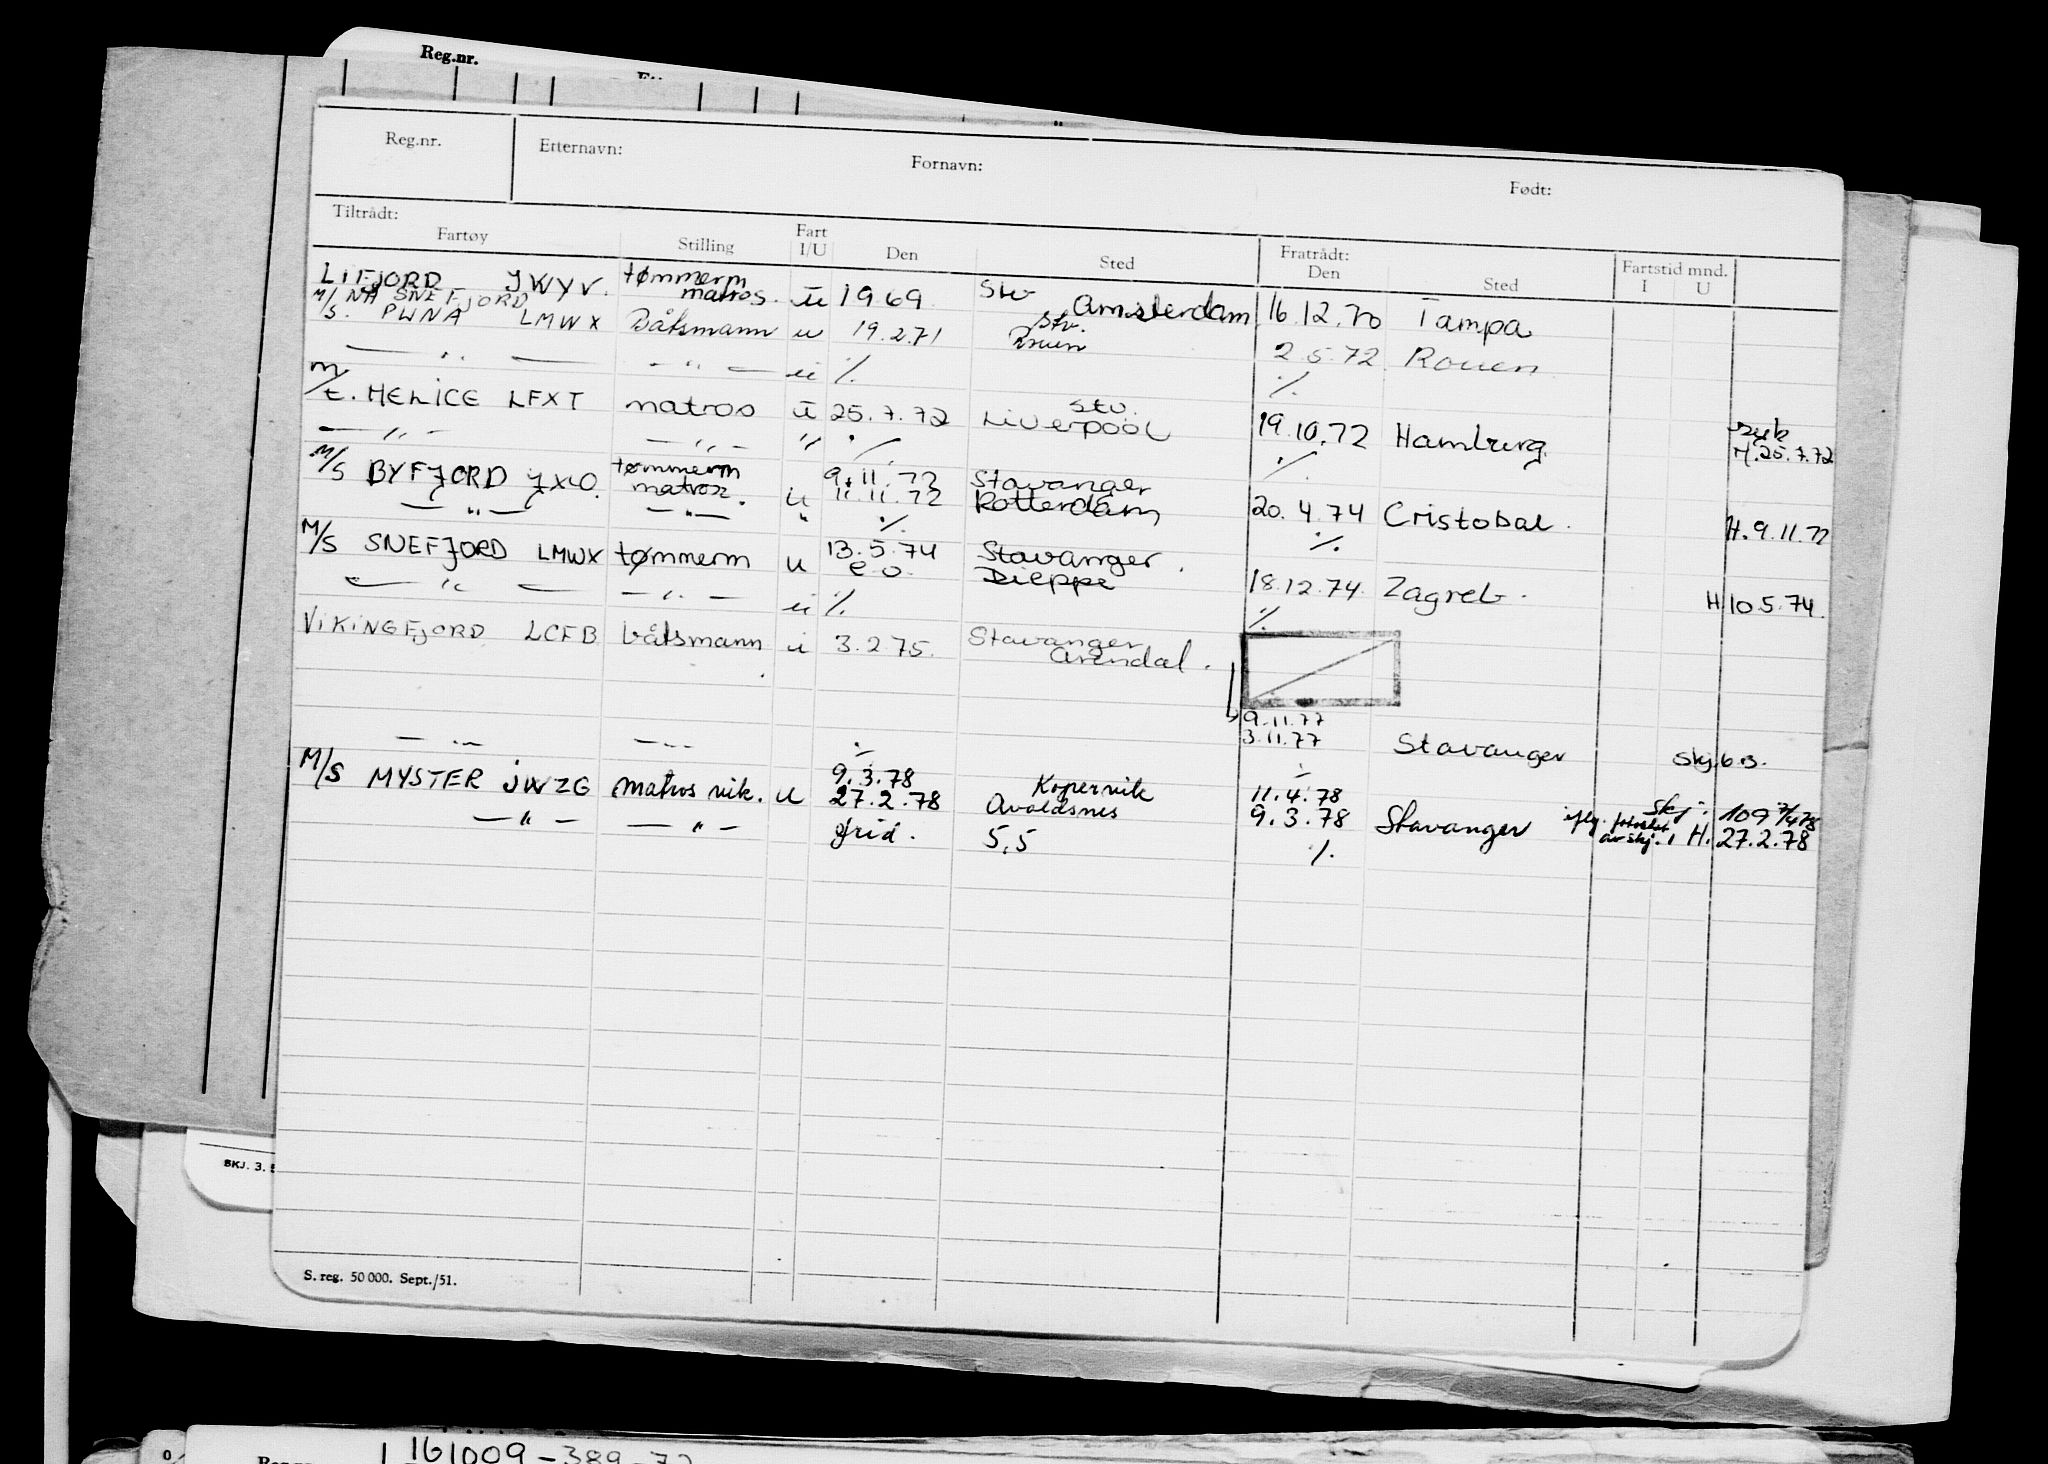 Reg.nr.
Reg.nr. Etternavn: Fornavn: Født:
Tiltrådt: Fratrådt:
Fartøy Stilling Fart I/U Den Sted Den Sted Fartstid mnd. I U
LIFJORD JWYV. tømmerm matros. u 1969. Stv Amsterdam 16.12.70 Tampa
M/S NÅ SNEFJORD
PWNA LMWX Båtsmann u 19.2.71 Stv. Rouen 2.5.72 Rouen
— " — — " — u ./. ./.
M/t. HELICE LFXT matros u 25.7.72 Stv. Liverpool 19.10.72 Hamburg. H.25.7.72
— " — — " — " ./. ./.
M/S BYFJORD JXLO. tømmerm matros. u 9.11.72 Stavanger
11.11.72 Rotterdam 20.4.74 Cristobal. H.9.11.72
— " — — " — " ./. ./.
M/S SNEFJORD LMWX tømmerm u 13.5.74 Stavanger.
e.o. Dieppe 18.12.74. Zagreb. H.10.5.74.
— " — — " — u ./. ./.
VIKINGFJORD LCFB båtsmann u 3.2.75. Stavanger
Arendal.
9.11.77
3.11.77 Stavanger skj.6B.
— " — — " — ./. ./.
M/S MYSTER JWZG matros vik. u 9.3.78 Kopervik 11.4.78 Skj. 109 7/4 78
27.2.78 Avaldsnes 9.3.78 Stavanger iflg. fotostat av skj. 1 H. 27.2.78
— " — — " — frid. 5,5 ./.
S. reg. 50 000. Sept./51.
SKJ. 3.
161009-389-72